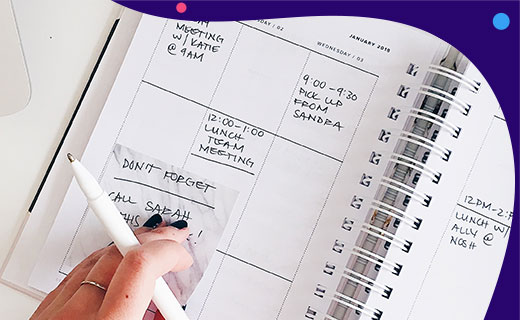 JANUARY 2018
/ 02
WEDNESDAY / 03
MEETING
W/ KATIE
@ 9AM
9:00-9:30
PICK UP
FROM
SANDRA
12:00-1:00
LUNCH
TEAM
MEETING
DON'T FORGET
CALL SARAH
12PM-2:
LUNCH W/
ALLY @
NOSH